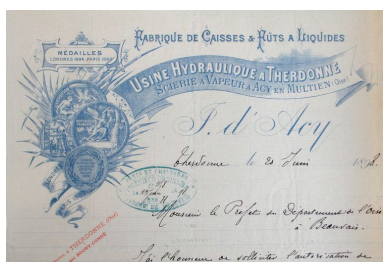 MÉDAILLES
LONDRES 1884. PARIS 1889
FABRIQUE DE CAISSES & FÛTS A LIQUIDES
USINE HYDRAULIQUE A THERDONNE
SCIERIE A VAPEUR A ACY EN MULTIEN (Oise)
F. d'Acy
Therdonne le 20 Juin 1898.
Monsieur le Préfet du Département de l'Oise
à Beauvais.
J'ai l'honneur de solliciter l'autorisation de
A THERDONNE (Oise)